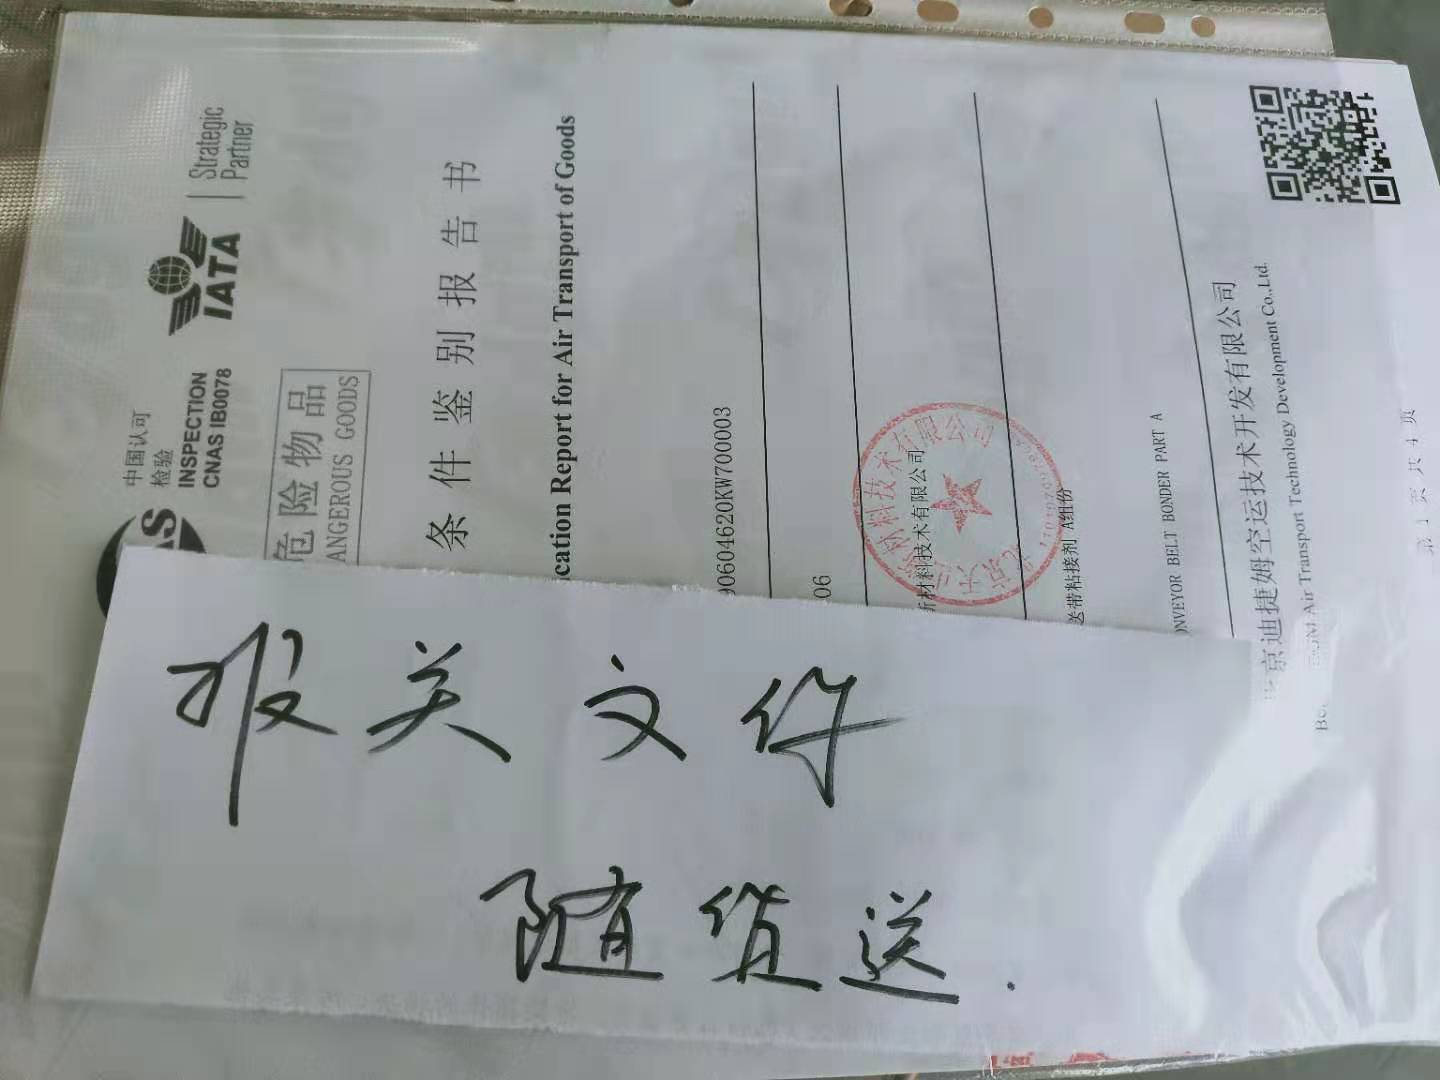 报关文件
随货送.
中国认可
检验
INSPECTION
CNAS IB0078
IATA
Strategic
Partner
危险物品
ANGEROUS GOODS
条件鉴别报告书
cation Report for Air Transport of Goods
90604620KW700003
06
新材料技术有限公司
送带粘接剂 A组份
ONVEYOR BELT BONDER PART A
京迪捷姆空运技术开发有限公司
DGM Air Transport Technology Development Co.,Ltd.
第 1 页 共 4 页